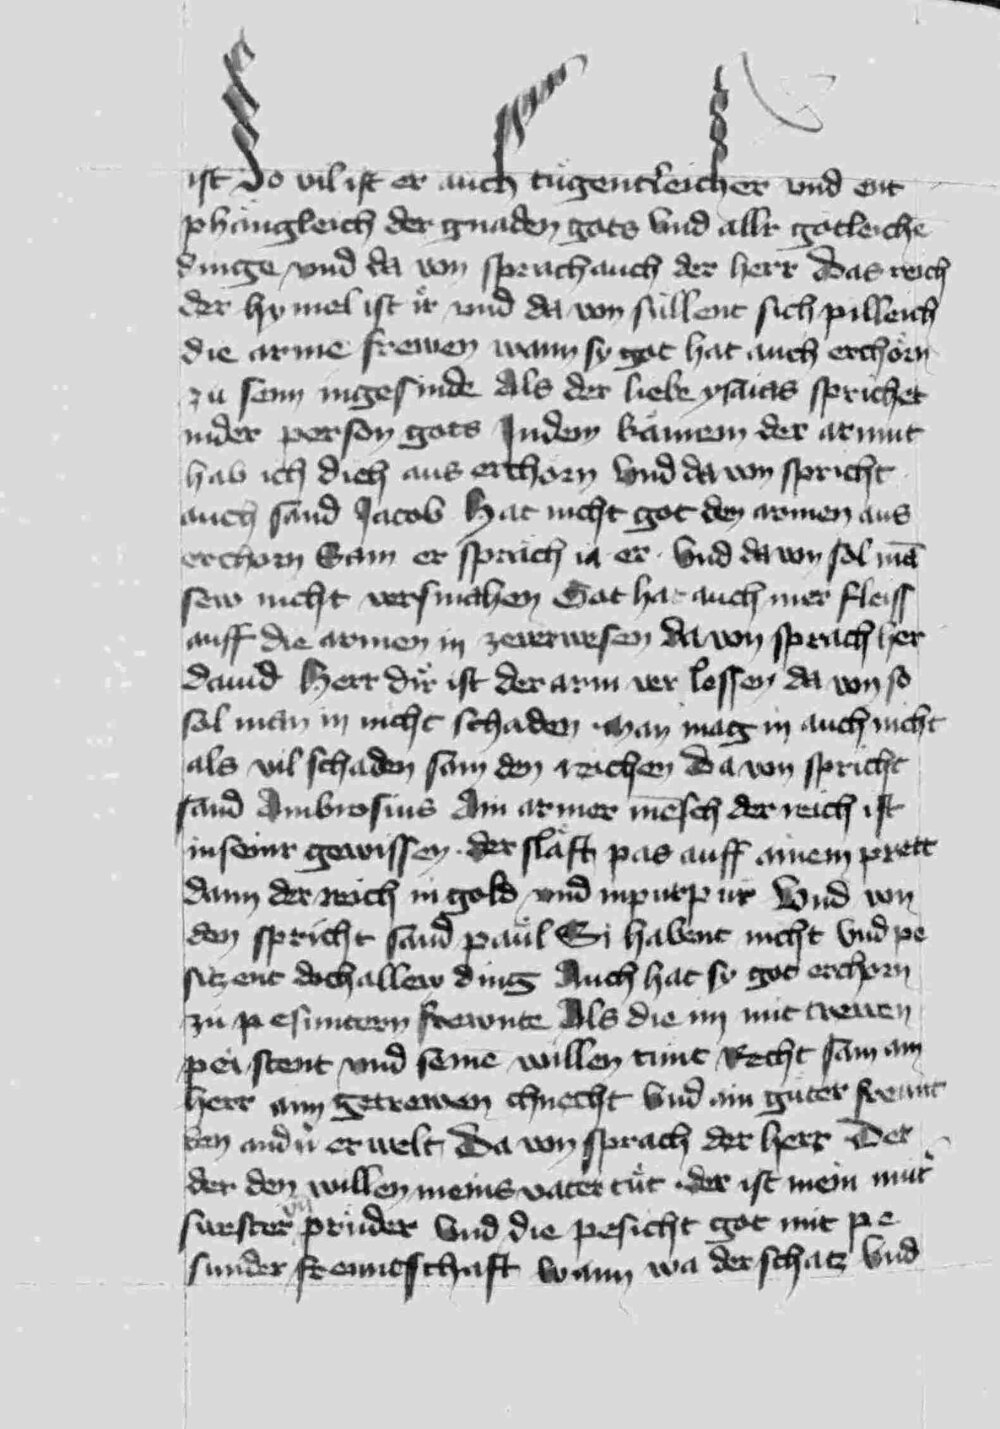 ist So vil ist er auch tugentleicher vnd ent
phängleich der gnaden gots Vnd allr gotleichē
dinge vnd da von sprach auch der herr Das reich
der hymel ist ir vnd da von süllent sich pilleich
die arme frewen wann sy got hat auch erchorn
zu seim ingesinde Als der liebe ysaias sprichet
in der person gots In dem kamern der armut
hab ich dich aus erchorn Vnd da von spricht
auch sand Jacob Hat nicht got den armen aus
erchorn Sam er sprach ia er · Vnd da von sol mā
sew nicht versmahen Got hat auch mer fleiss
auff die armen in zeverwesen da von sprach her
dauid Herr dir ist der arm ver lossen da von so
sol man in nicht schaden · man mag in auch nicht
als vil schaden sam den reichen Da von spricht
sand Ambrosius Ain armer mēsch der reich ist
in seinr gewissen · der släft pas auff ainem prett
dann der reich in gold vnd in purpur Vnd von
den spricht sand paul Si habent nicht vnd pe
sitzent doch allew ding Auch hat sy got erchorn
zu pesuntern frewnte Als die im mit trewen
pei stent vnd seine willen tunt Recht sam ain
herr ainn getrewen chnecht Vnd ain guter freunt
den andn̄ erwelt Da von sprach der herr Der
der den willen meins vater tut · der ist mein mut̄
swester vn̄ pruder Vnd die pesicht got mit pe
sunder freuntschaft wann wa der schatz Vnd